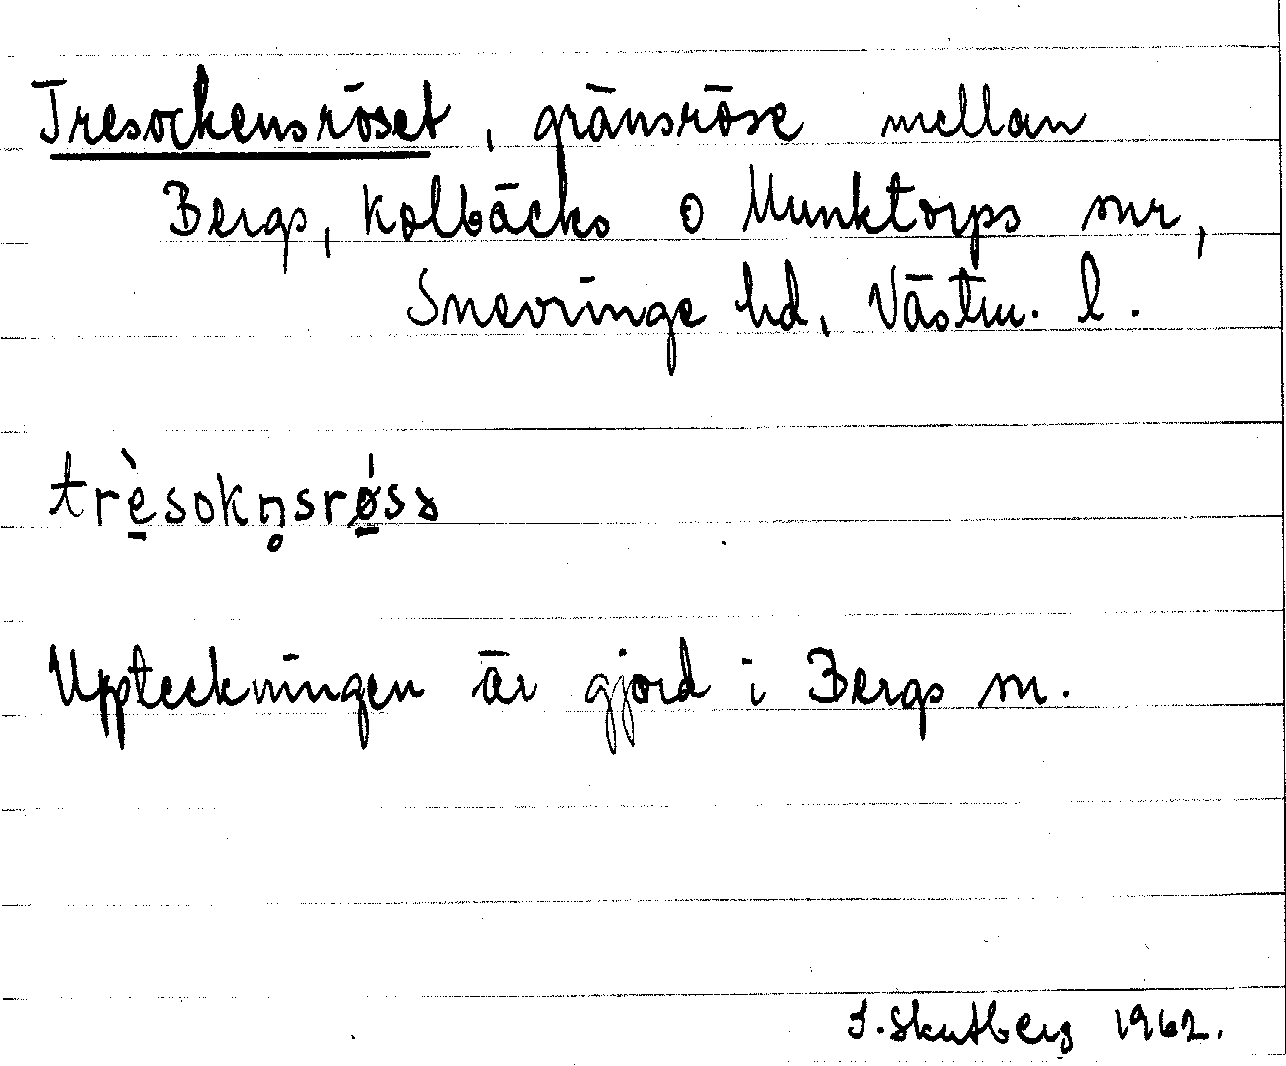 Tresockensröset, gränsröse mellan
Bergs, Kolbäcks o Munktorps snr,
Snevringe hd, Västm. l.
trè̱sokn̥srǿ̱sə
Uppteckningen är gjord i Bergs sn.
I. Skutberg 1962.